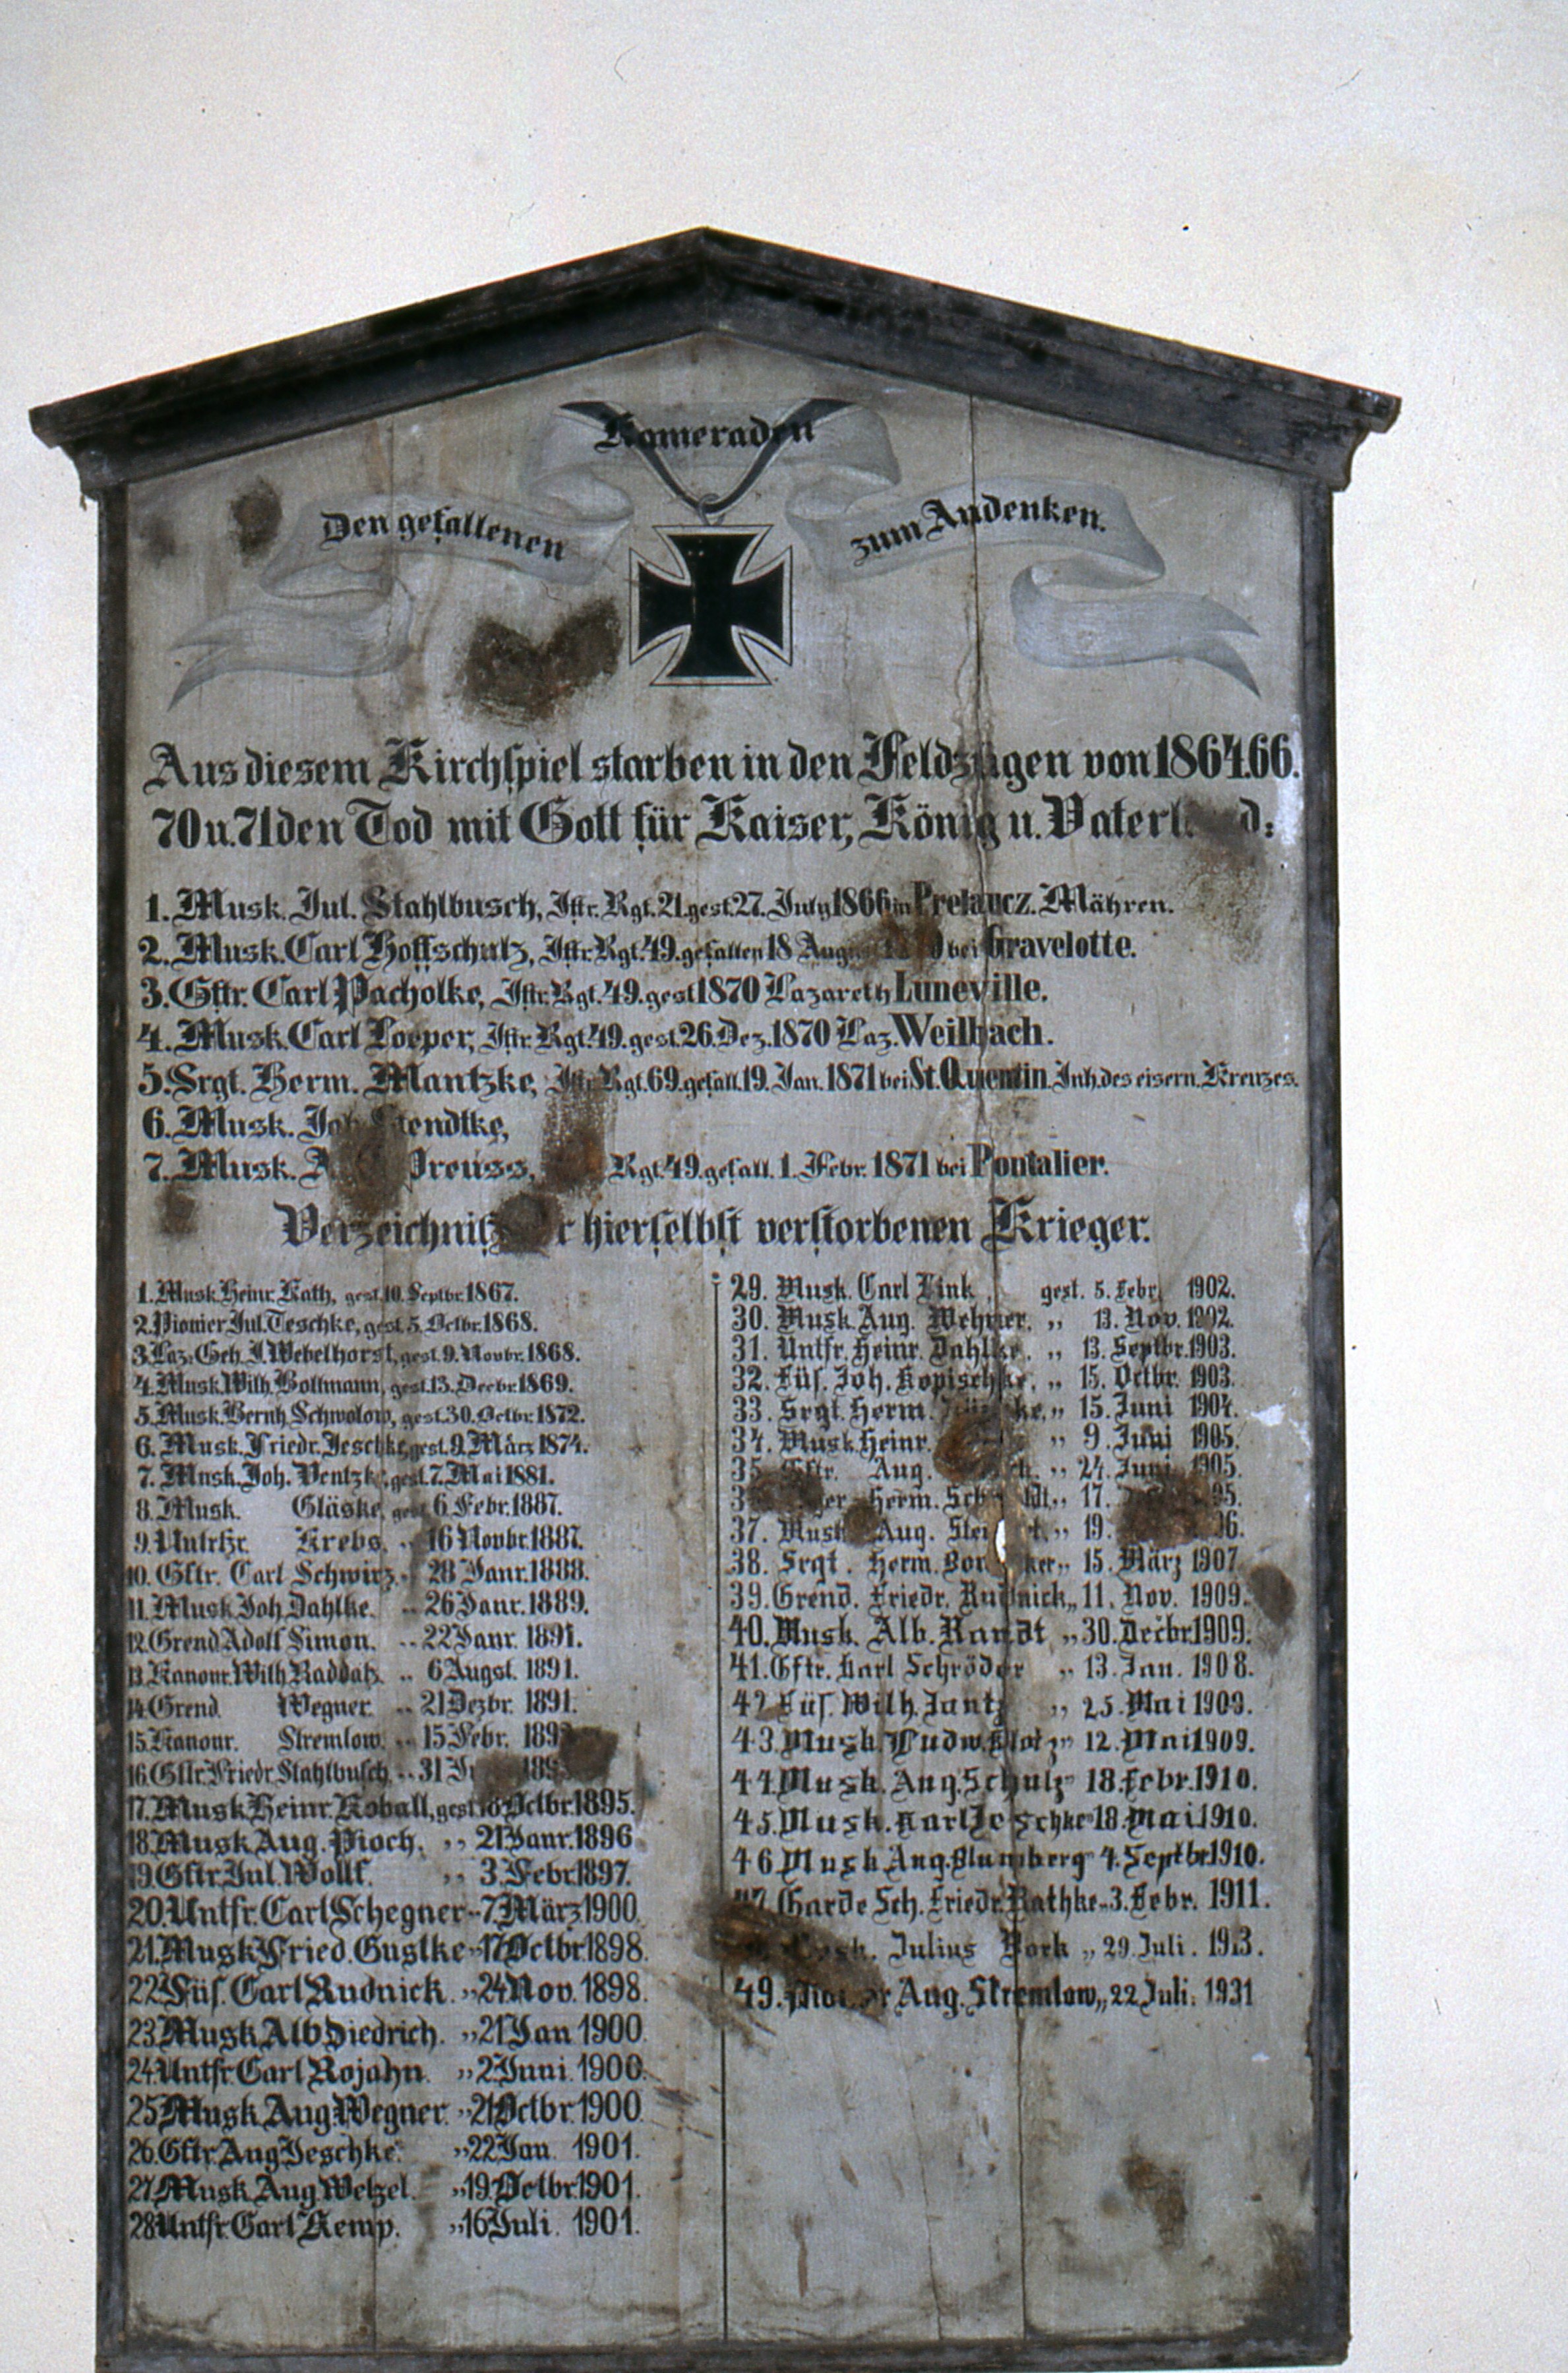 Kameraden
Den gefallenen
zum Andenken.
Aus diesem Kirchspiel starben in den Feldzügen von 1864.66.
70 u. 71 den Tod mit Gott für Kaiser, König u.
1. Musk. Jul. Stahlbusch, Iftr. Rgt. 21. gest. 27. July 1866 in Prelaucz. Mähren.
2. Musk. Carl Hoffschulz, Iftr. Rgt. 49. gefallen 18 bei Gravelotte.
3. Gftr. Carl Pacholke, Iftr. Rgt. 49. gest 1870 Lazareth Luneville.
4. Musk. Carl Loeper, Iftr. Rgt. 49. gest. 26. Dez. 1870 Laz. Weilbach.
5. Srgt. Herm. Mantzke, Iftr. Rgt. 69. gefall. 19. Jan. 1871 bei St. Quentin. Inh. des eisern. Kreuzes.
6. Musk.
7. Musk. Preuss, Rgt. 49. gefall. 1. Febr. 1871 bei Pontalier.
hierselbst verstorbenen Krieger.
1. Musk. Heinr. Kath, gest. 10. Septbr. 1867.
2. Pionier Jul. Teschke, gest. 5. Octbr. 1868.
3. Laz. Geh. J. Webelhorst, gest. 9. Novbr. 1868.
4. Musk. Wilh. Boltmann, gest. 13. Decbr. 1869.
5. Musk. Bernh. Schwolow, gest. 30. Octbr. 1872.
6. Musk. Friedr. Jeschke, gest. 9. März 1874.
7. Musk. Joh. Ventzke, gest. 7. Mai 1881.
8. Musk. Gläske, gest. 6. Febr. 1887.
9. Untrfzr. Krebs. „ 16 Novbr. 1887.
10. Gftr. Carl Schwirz. „ 28 Janr. 1888.
11. Musk. Joh. Dahlke. „ 26 Janr. 1889.
12. Grend Adolf Simon. „ 22 Janr. 1891.
13. Kanour. Wilh. Raddatz. „ 6 Augst. 1891.
14. Grend. Wegner. „ 21 Dezbr. 1891.
15. Kanour. Stremlow. „ 15 Febr.
16. Gftr. Friedr. Stahlbusch „ 31
17. Musk Heinr. Koball, gest. 18 Octbr. 1895.
18. Musk Aug. Pioch. „ 21 Janr. 1896
19. Gftr. Jul. Wollf. „ 3. Febr. 1897.
20. Untfr. Carl Schegner „ 7. März 1900.
21. Musk Fried. Gustke „ 17 Octbr. 1898.
22. Füs. Carl Rudnick. „ 24 Nov. 1898.
23. Musk Alb Diedrich. „ 21 Jan 1900.
24. Untfr. Carl Rojahn. „ 2 Juni. 1900.
25. Musk Aug. Wegner. „ 21 Octbr. 1900.
26. Gftr. Aug Jeschke. „ 22 Jan 1901.
27. Musk Aug Wetzel. „ 19 Octbr. 1901.
28. Untfr. Carl Kemp. „ 16 Juli. 1901.
29. Musk. Carl Link, gest. 5. Febr. 1902.
30. Musk. Aug. Wehner. „ 13. Nov. 1902.
31. Untfr. Heinr. Dahlke. „ 13. Septbr. 1903.
32. Füs. Joh. Kopischke. „ 15. Octbr. 1903.
33. Srgt. Herm. „ 15. Juni 1904.
34. Musk Heinr. „ 9. Juni 1905.
35. Gftr. Aug. „ 24. Juni 1905.
Herm. „ 17.
37. Musk Aug. „ 19.
38. Srgt. Herm. „ 15. März 1907.
39. Grend. Friedr. Rudnick „ 11. Nov. 1909.
40. Musk. Alb. Randt „ 30. Decbr. 1909.
41. Gftr. Karl Schröder „ 13. Jan. 1908.
42. Füs. Wilh. Jantz „ 25. Mai 1909.
43. Musk. Ludw. Klotz „ 12. Mai 1909.
44. Musk. Aug. Schulz „ 18. Febr. 1910.
45. Musk. Karl Jeschke „ 18. Mai 1910.
46. Musk. Aug. Blumberg „ 4. Septbr. 1910.
47. Garde Sch. Friedr. Rathke „ 3. Febr. 1911.
Julius Bork „ 29. Juli. 1913.
49. Aug. Stremlow „ 22 Juli. 1931